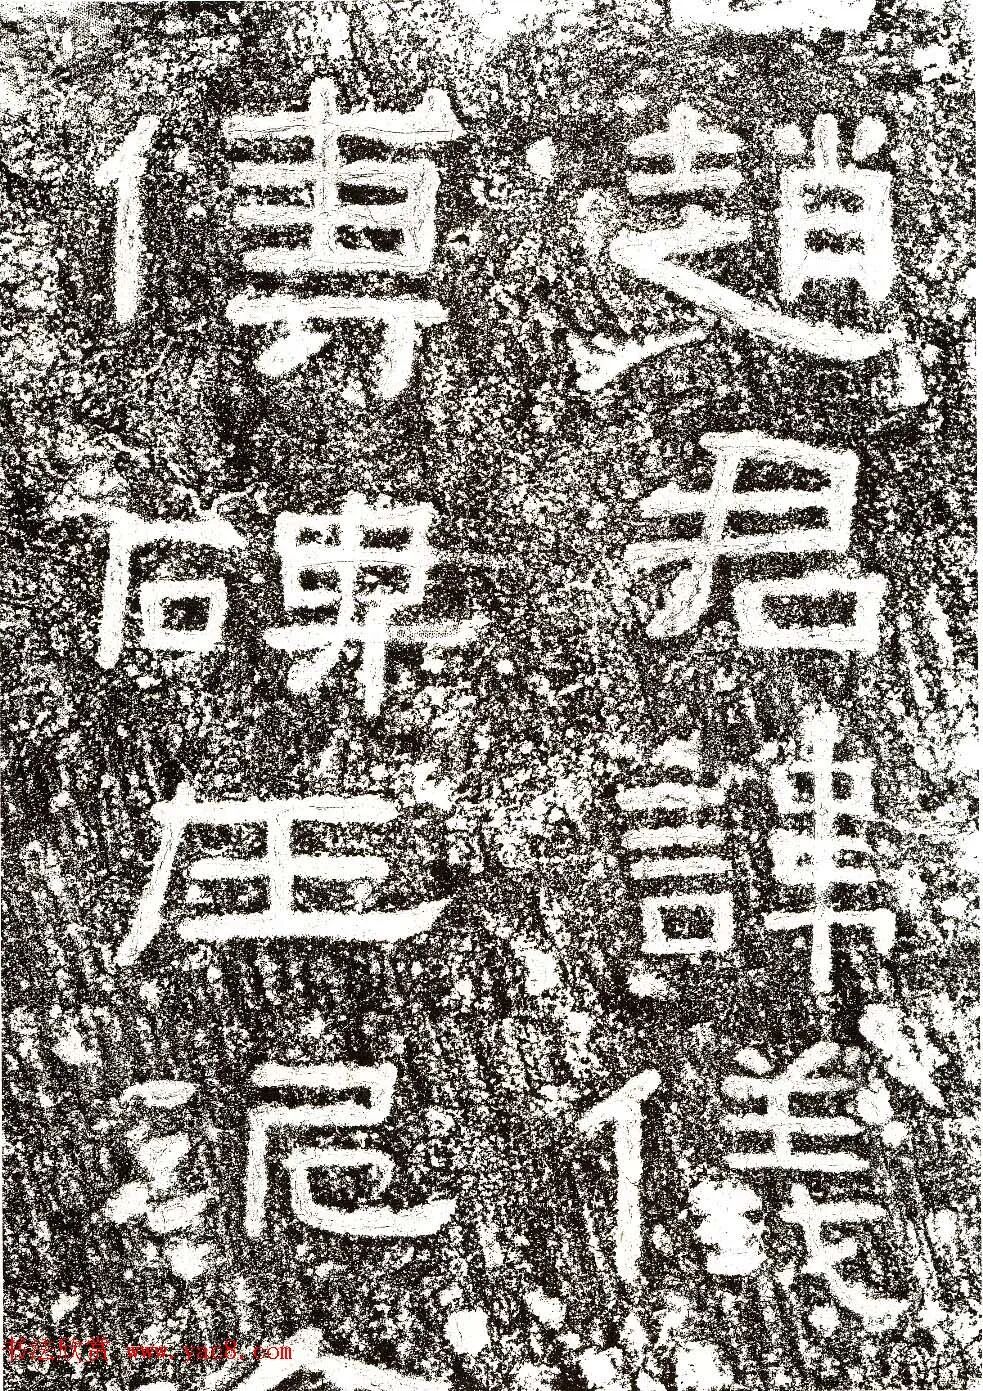 趙君諱儀
傅碑
书法欣赏 www.yac8.com